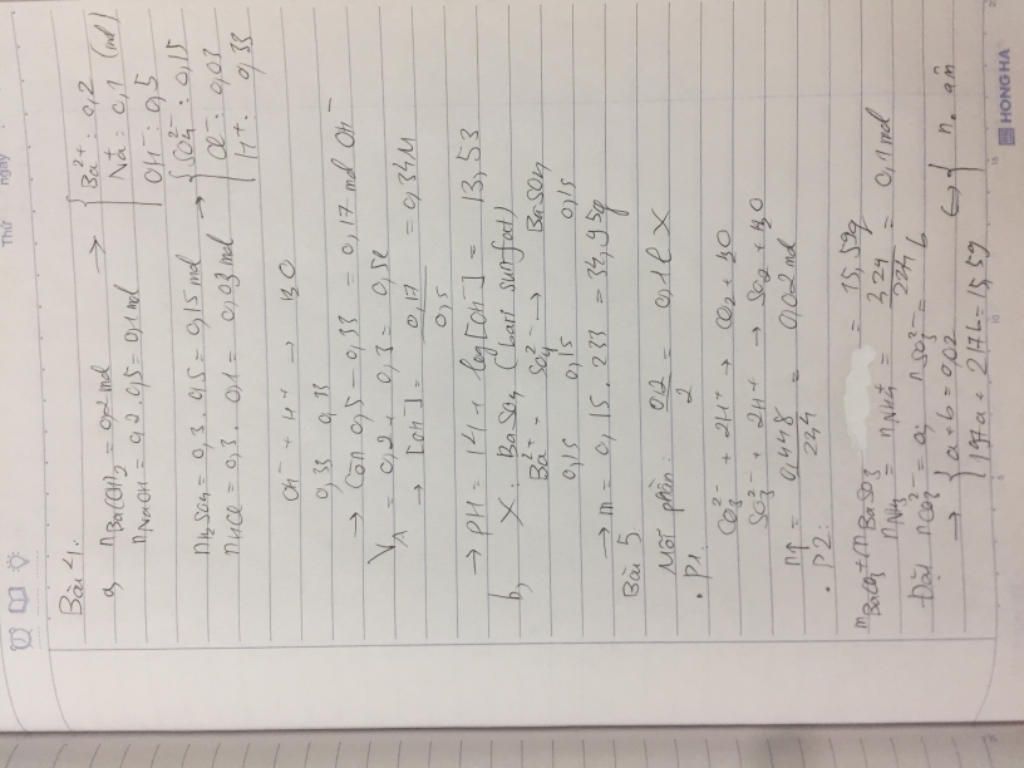 Thứ
ngày
Bài 4:
a, nBa(OH)2 = 0,2 mol → { Ba2+: 0,2
nNaOH = 0,2 . 0,5 = 0,1 mol Na+: 0,1 (mol)
OH-: 0,5
nH2SO4 = 0,3 . 0,5 = 0,15 mol → { SO42-: 0,15
nHCl = 0,3 . 0,1 = 0,03 mol Cl-: 0,03
H+: 0,33
OH- + H+ → H2O
0,33 0,33
→ Còn 0,5 - 0,33 = 0,17 mol OH-
VA = 0,2 + 0,3 = 0,5l
→ [OH-] = 0,17 / 0,5 = 0,34M
→ pH = 14 + log[OH] = 13,53
b, X: BaSO4 (bari sunfat)
Ba2+ + SO42- → BaSO4
0,15 0,15 0,15
→ m = 0,15 . 233 = 34,95g
Bài 5
Mỗi phần: 0,2 / 2 = 0,1l X
• P1:
CO32- + 2H+ → CO2 + H2O
SO32- + 2H+ → SO2 + H2O
n↑ = 0,448 / 22,4 = 0,02 mol
• P2:
mBaCO3 + mBaSO3 = 15,59g
nNH3 = nNH4+ = 2,24 / 22,4 = 0,1 mol
Đặt nCO32- = a; nSO32- = b
→ { a + b = 0,02
197a + 217b = 15,59 ↔ { n. âm
HONG HA